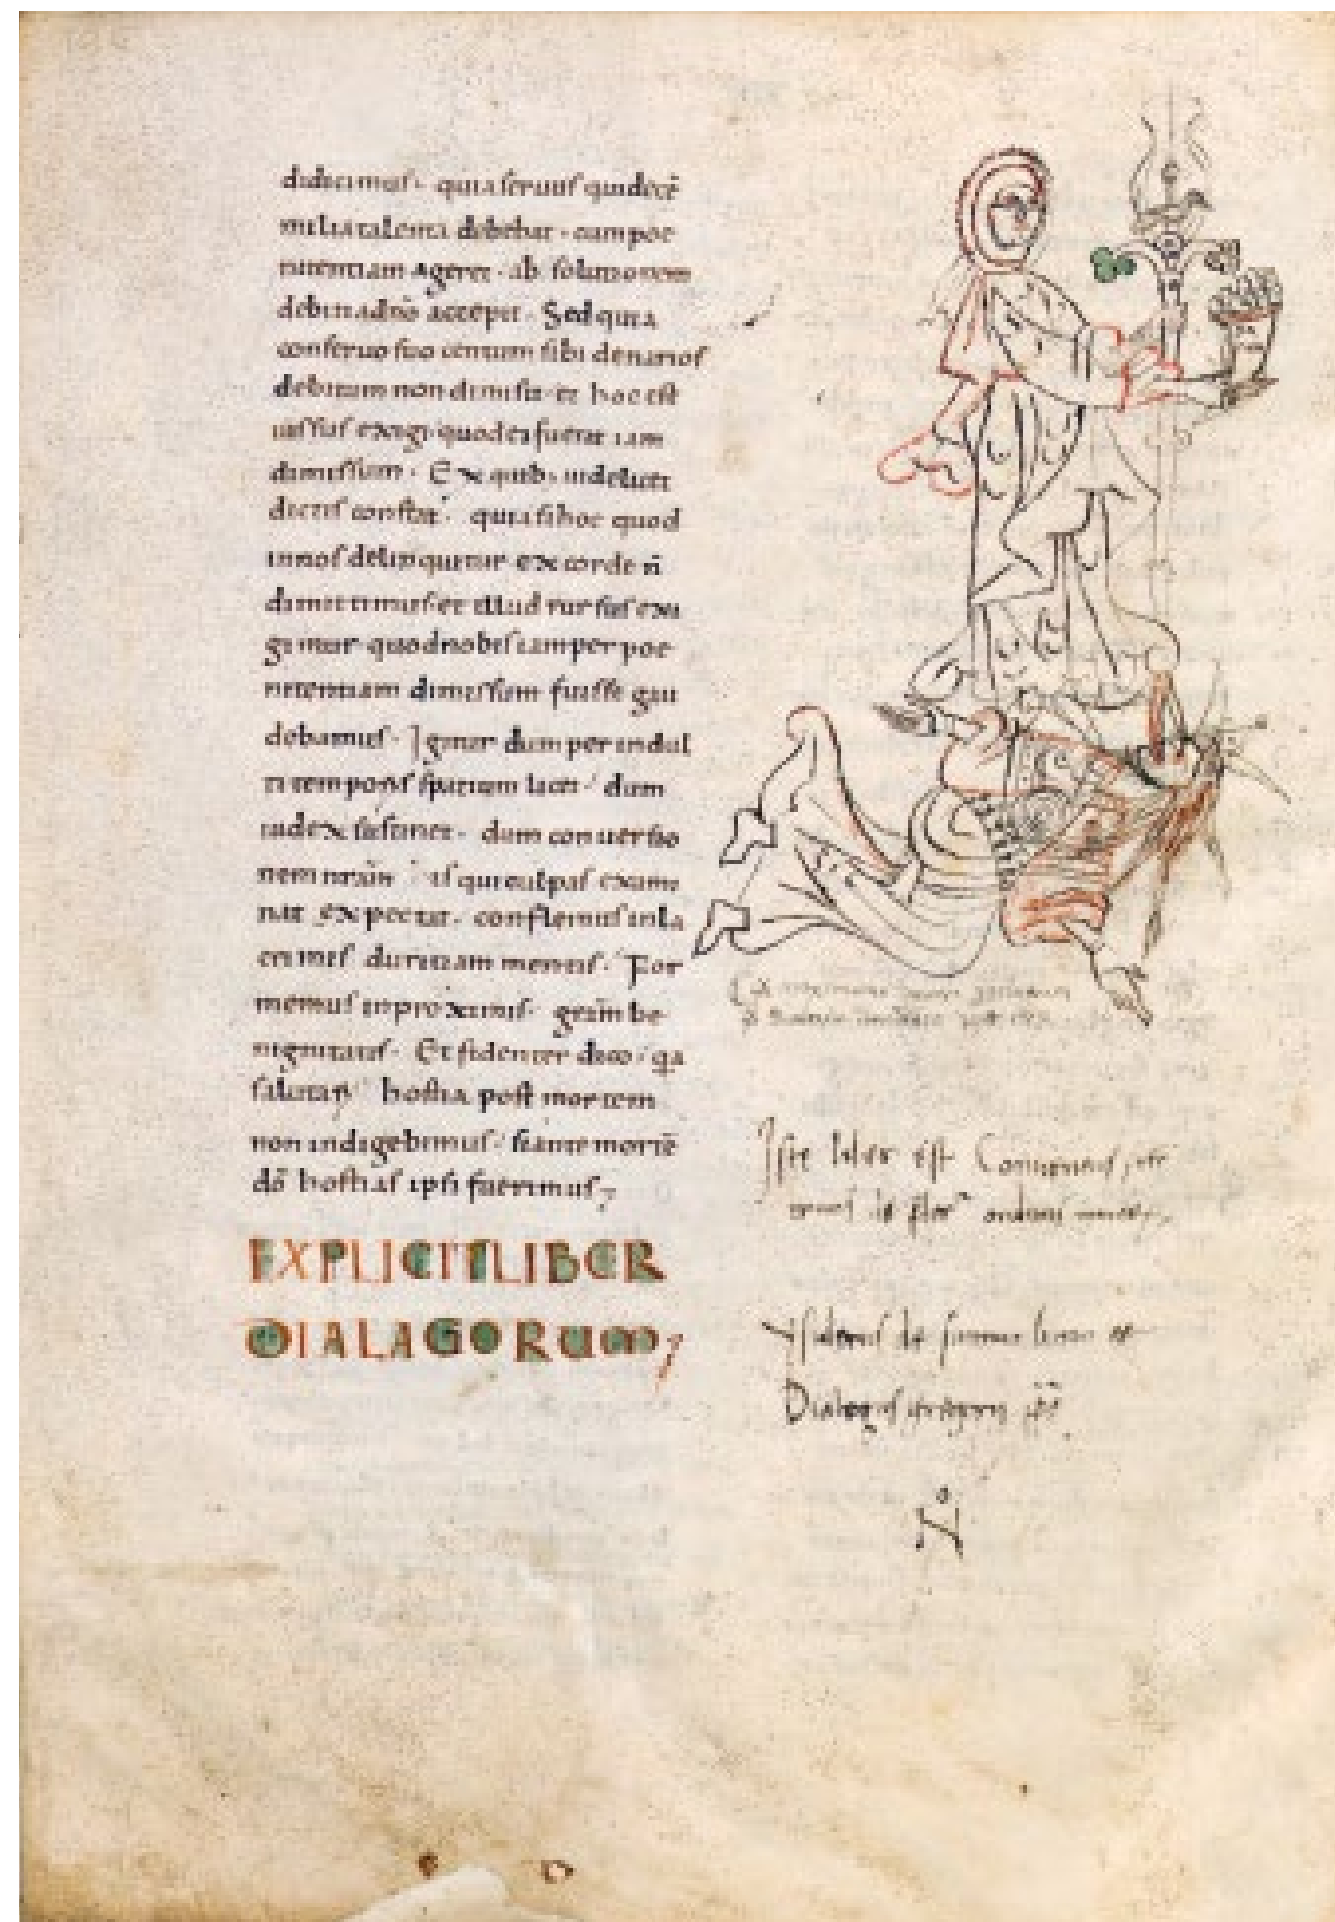 didicimus· quia seruus qui decē
milia talenta debebat· cum poe
nitentiam ageret· ab solutionem
debiti a dn̄o accepit· Sed quia
conseruo suo centum sibi denarios
debitum non dimisit· et hoc est
iussus exigi· quod ei fuerat iam
dimissum· Ex quib; uidelicet
dictis constat· quia si hoc quod
in nos delinquitur ex corde ñ
dimittimus· et illud rursus exi
gimur quod nobis iam per poe
nitentiam dimissum fuisse gau
debamus· Igitur dum per indul
ti temporis spatium licet· dum
iudex sustinet· dum conuersio
nem nr̄am is qui culpas exami
nat expectat· conflemus in la
crimis duritiam mentis· For
memus in proximis· gr̄am be
nignitatis· Et fidenter dico· qa
salutari hostia post mortem
non indigebimus· si ante mortē
dō hostias ipsi fuerimus;
EXPLICIT LIBER
DIALAGORUM;
Iste liber est Conuentus
ordinis
ysidorus de summo bono et
Dialogus gregorii pp
N°